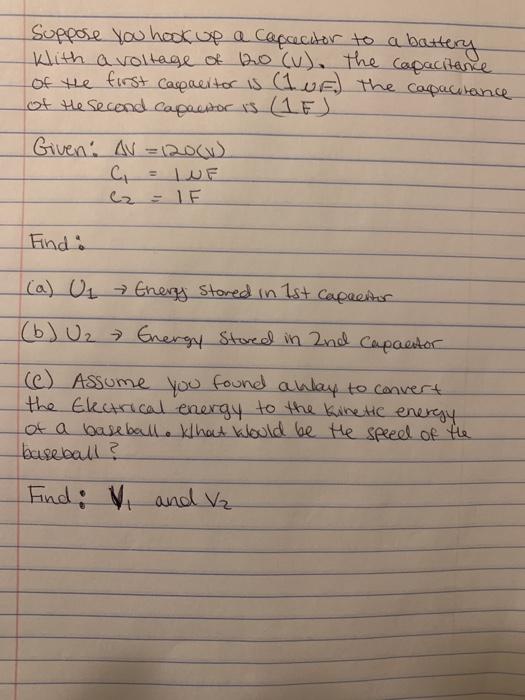 Suppose you hook up a capacitor to a battery
With a voltage of 120 (V). The capacitance
of the first capacitor is (1 uF.) The capacitance
of the second capacitor is (1 F)
Given: ΔV = 120(V)
C1 = 1 uF
C2 = 1 F
Find:
(a) U1 → Energy stored in 1st capacitor
(b) U2 → Energy stored in 2nd capacitor
(c) Assume you found a way to convert
the Electrical energy to the kinetic energy
of a baseball. What would be the speed of the
baseball?
Find: V1 and V2